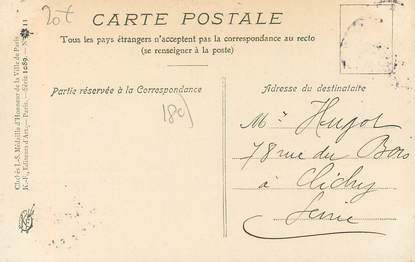 20t
CARTE POSTALE
Tous les pays étrangers n'acceptent pas la correspondance au recto
(se renseigner à la poste)
Partie réservée à la Correspondance
Adresse du destinataire
180
Mr Hugot
78 rue du Bois
à Clichy
Seine
Cliché L.-S. Médaille d'Honneur de la Ville de Paris
K.-F., Editeurs d'Art. — Paris. — Série 1089. — N° 11